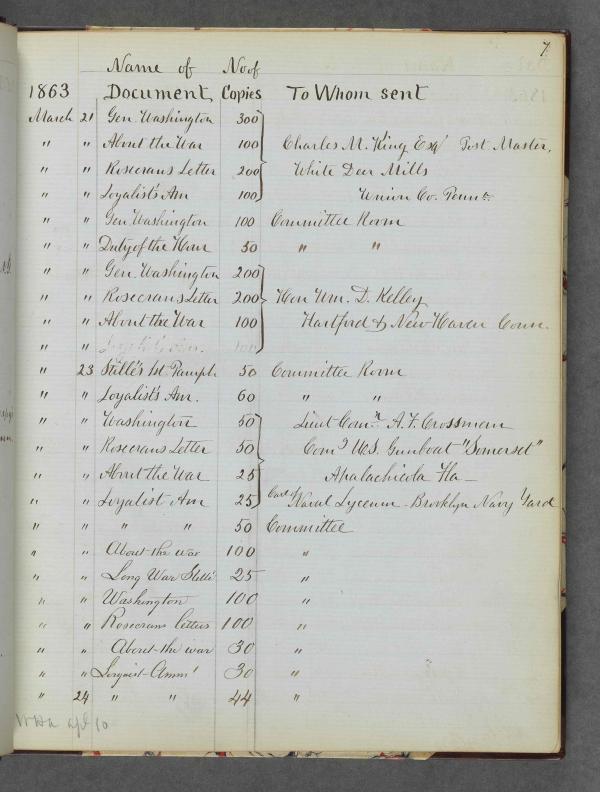 7
Name of No of
1863 Document Copies To Whom sent
March 21 Gen. Washington 300
" " About the War 100 Charles M. King Esqr Post Master,
" " Rosecrans Letter 200 White Deer Mills
" " Loyalist's Am 100 Union Co. Penna.
" " Gen Washington 100 Committee Room
" " Duty of the Hour 50 " "
" " Gen. Washington 200
" " Rosecrans Letter 200 Hon Wm. D. Kelley
" " About the War 100 Hartford & New-Haven Conn.
" " 100
" 23 Stillé's 1st Pamph 50 Committee Room
" " Loyalist's Am. 60 " "
" " Washington 50 Lieut Com. A. F. Crossman
" " Rosecrans Letter 50 Comg U.S. Gunboat "Somerset"
" " About the War 25 Apalachicola Fla -
" " Loyalist, Am 25 Care of Naval Lyceum - Brooklyn Navy Yard
" " " " 50 Committee
" " About the war 100 "
" " Long War Stillé 25 "
" " Washington 100 "
" " Rosecrans letters 100 "
" " About the war 30 "
" " Loyalist Amm 30 "
" 24 " " 44 "